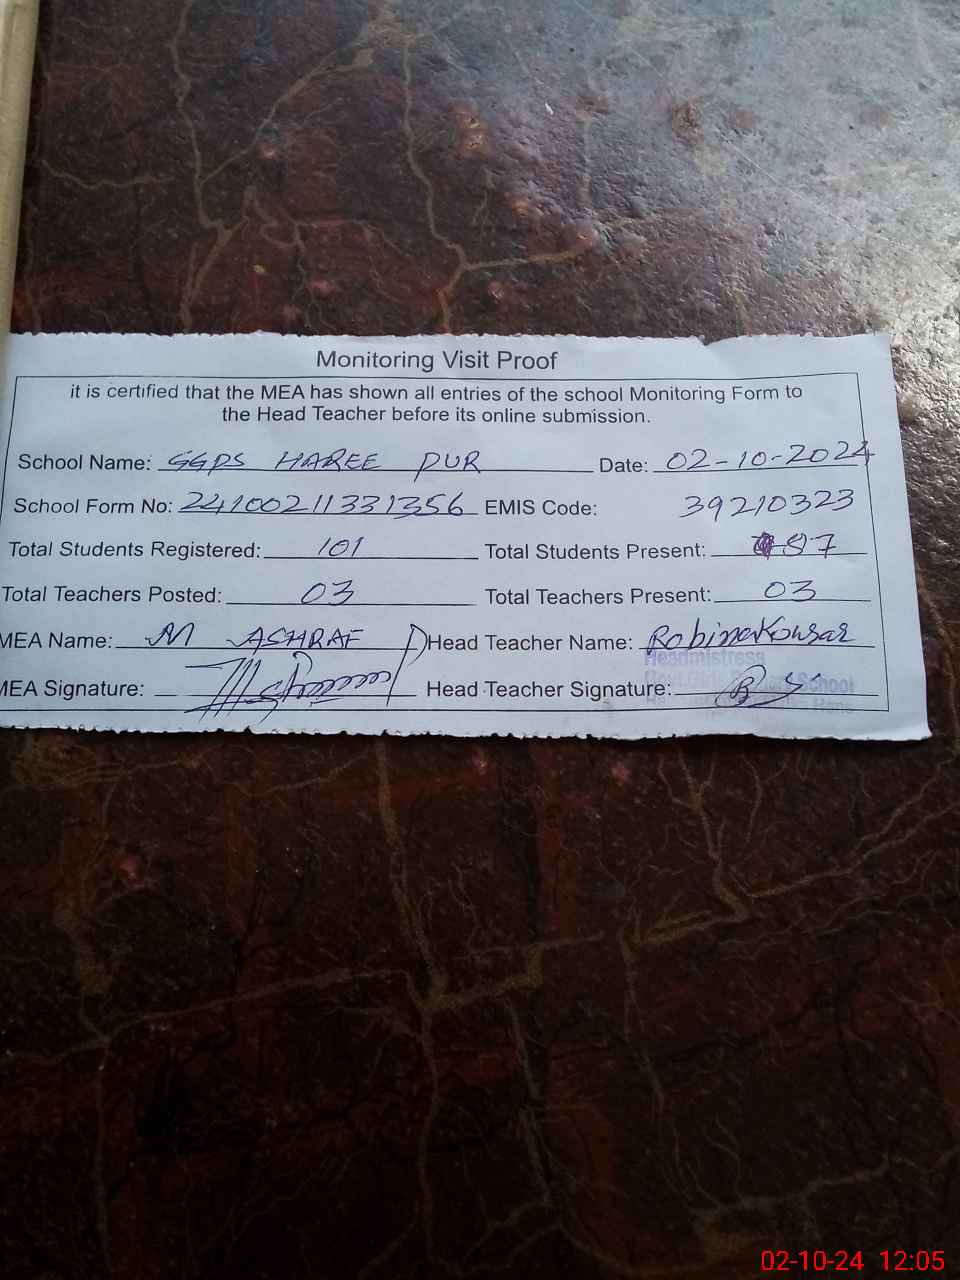 Monitoring Visit Proof
it is certified that the MEA has shown all entries of the school Monitoring Form to
the Head Teacher before its online submission.
School Name: GGPS HAREE PUR Date: 02-10-2024
School Form No: 24100211331356 EMIS Code: 39210323
Total Students Registered: 101 Total Students Present: 87
Total Teachers Posted: 03 Total Teachers Present: 03
MEA Name: M ASHRAF Head Teacher Name: Robina Kousar
Headmistress
MEA Signature: Head Teacher Signature:
Govt. Girls School
02-10-24 12:05